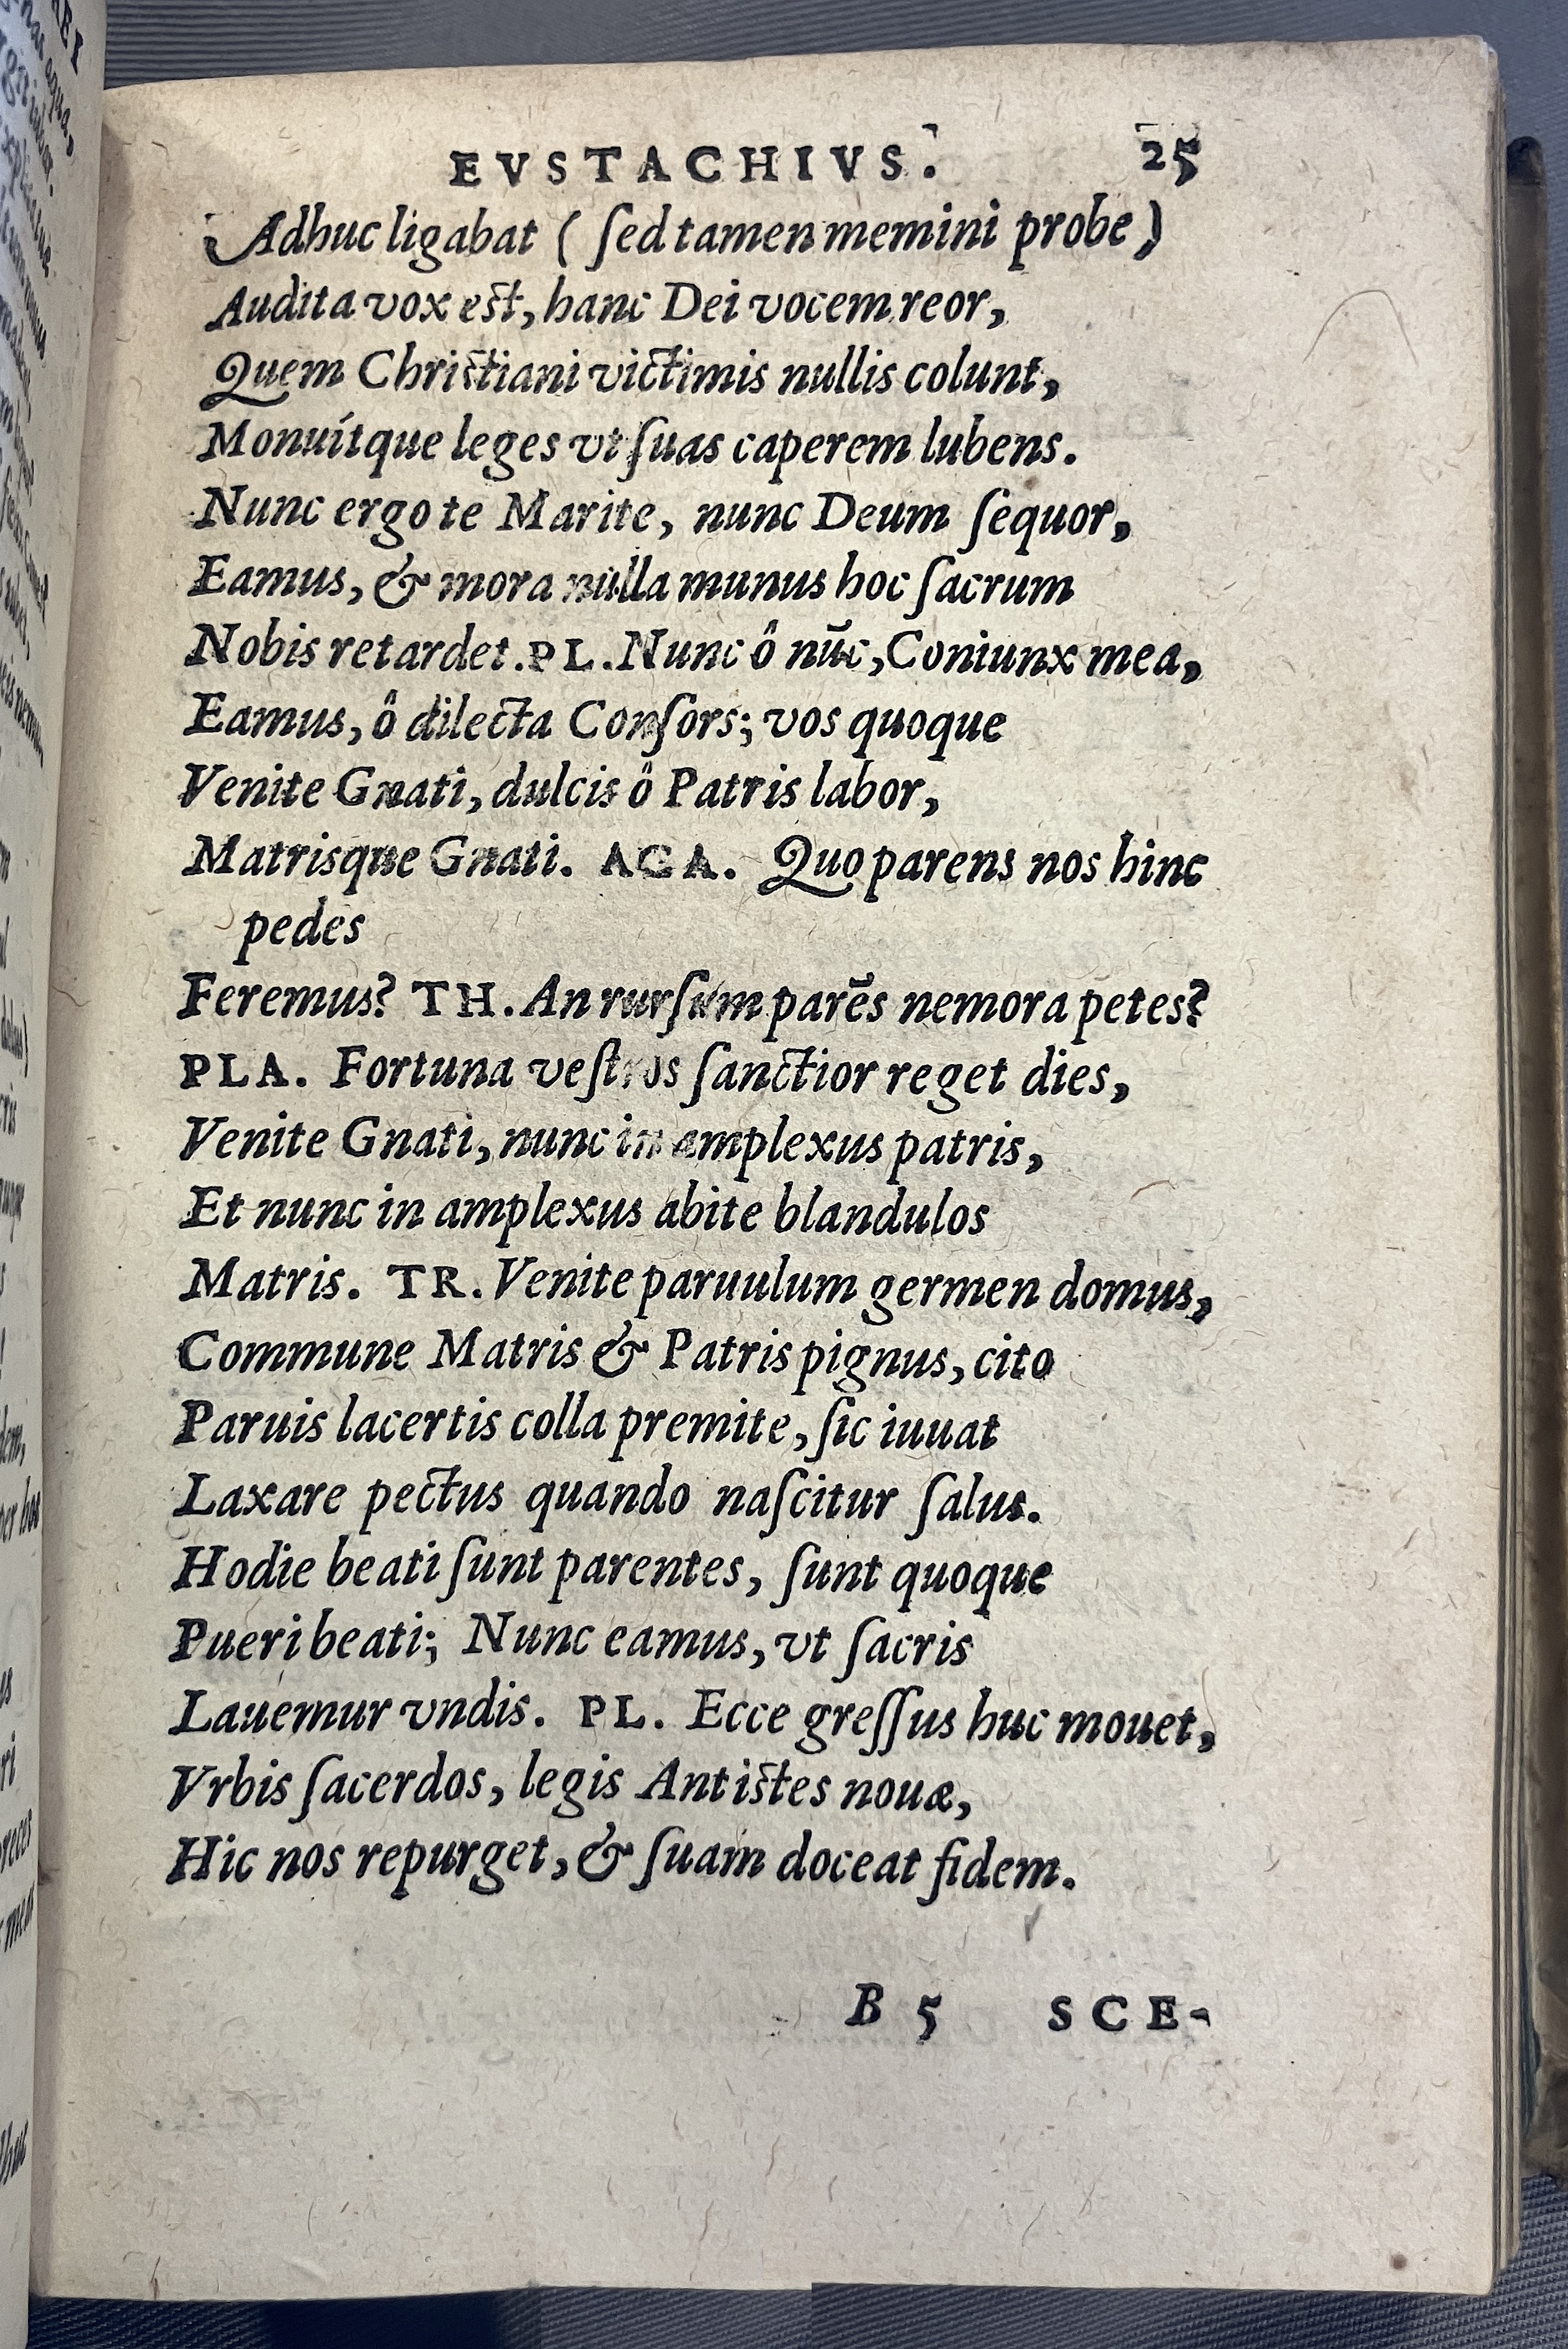 EVSTACHIVS. 25
Adhuc ligabat ( ſed tamen memini probe )
Audita vox est, hanc Dei vocem reor,
Quem Christiani victimis nullis colunt,
Monuítque leges vt ſuas caperem lubens.
Nunc ergo te Marite, nunc Deum ſequor,
Eamus, & mora nulla munus hoc ſacrum
Nobis retardet. PL. Nunc ô nūc, Coniunx mea,
Eamus, ô dilecta Conſors; vos quoque
Venite Gnati, dulcis ô Patris labor,
Matrisque Gnati. AGA. Quo parens nos hinc
pedes
Feremus? TH. An rurſum parēs nemora petes?
PLA. Fortuna veſtros ſanctior reget dies,
Venite Gnati, nunc in amplexus patris,
Et nunc in amplexus abite blandulos
Matris. TR. Venite paruulum germen domus,
Commune Matris & Patris pignus, cito
Paruis lacertis colla premite, ſic iuuat
Laxare pectus quando naſcitur ſalus.
Hodie beati ſunt parentes, ſunt quoque
Pueri beati; Nunc eamus, vt ſacris
Lauemur vndis. PL. Ecce greſſus huc mouet,
Vrbis ſacerdos, legis Antistes nouæ,
Hic nos repurget, & ſuam doceat fidem.
B 5 SCE-